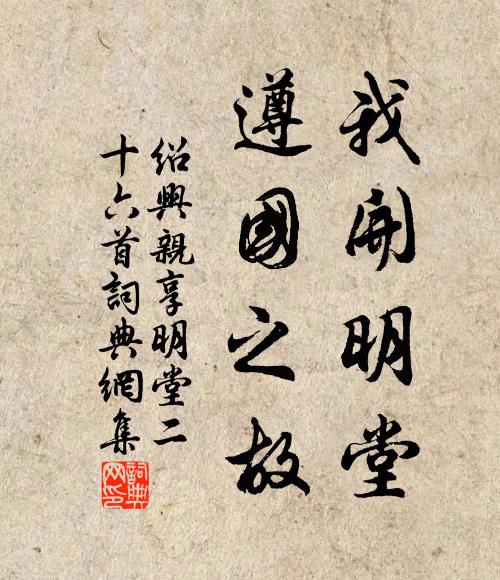 我開明堂
遵國之故
紹興親享明堂二
十六首詞典網集
詞典
网印